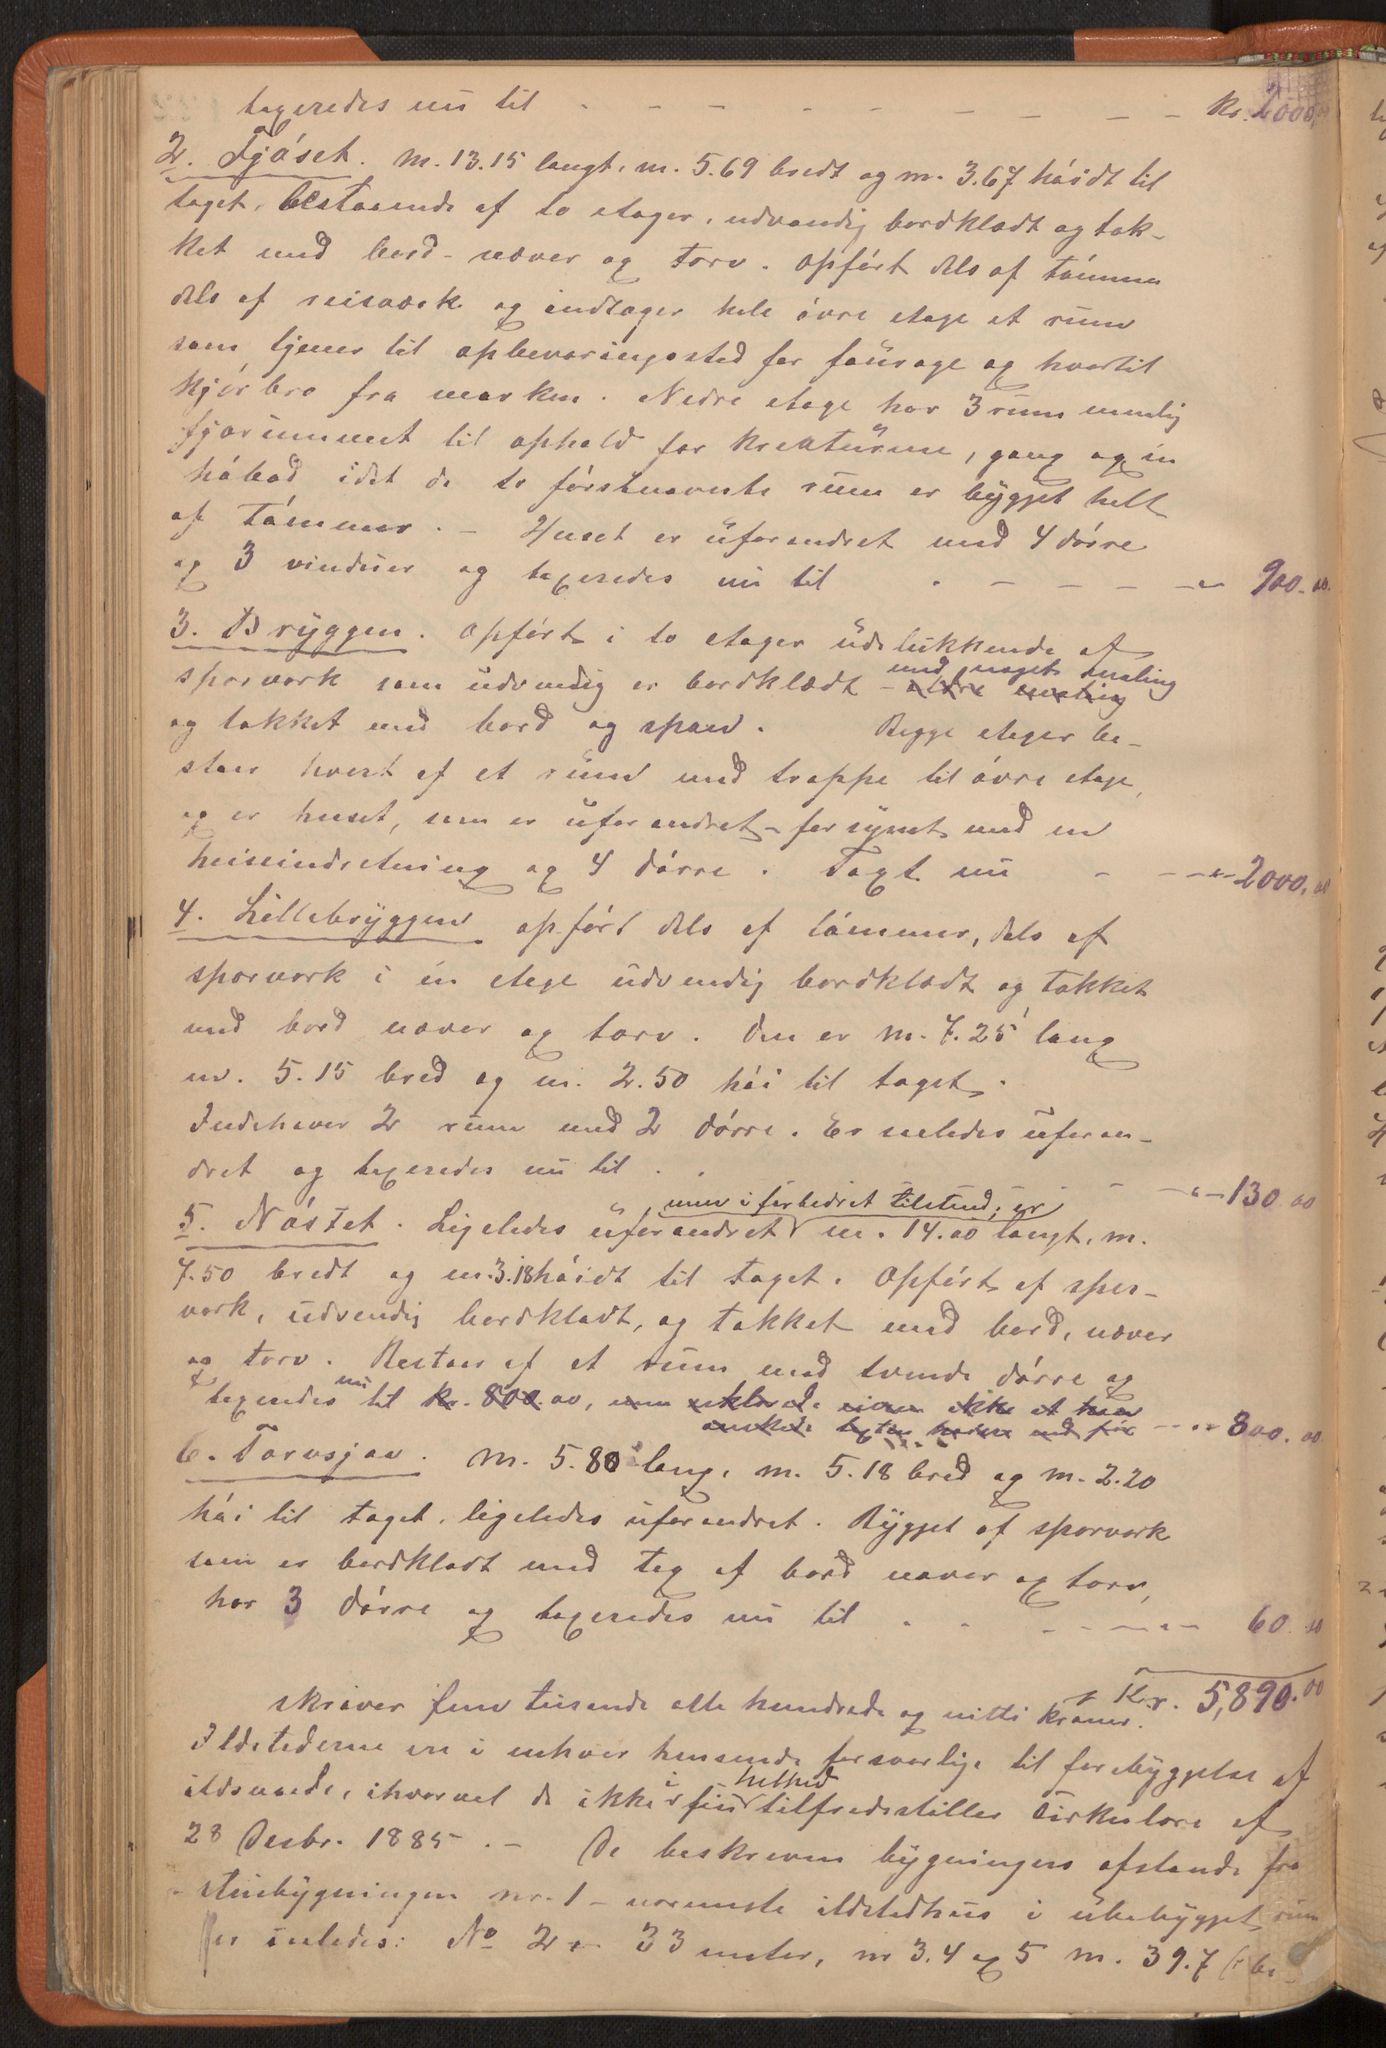 taxeredes nu til - - - - - - - - kr. 2000,00
2. Fjöset. m. 13.15 langt, m. 5.69 bredt og m. 3.67 höidt til
taget, bestaaende af to etager, udvendig bordklædt og tæk-
ket med bord - næver og torv. Opfört dels af tömmer
dels af reisværk og indtager hele övre etage et rum
som tjener til opbevaringssted for fourage og hvortil
kjörbro fra marken. Nedre etage har 3 rum nemlig
fjösrummet til ophold for kreaturene, gang og en
höbod idet de to förstnævnte rum er bygget helt
af tömmer. - Huset er uforandret med 4 dörre
og 3 vinduer og taxeredes nu til - - - - - " - 900.00
3. Bryggen. Opfört i to etager udelukkende af
sporværk som udvendig er bordklædt - med noget maling
og tækket med bord og spaan. Begge etager be-
staar hvert af et rum med trappe til övre etage,
og er huset, som er uforandret - forsynet med en
heiseindretning og 4 dörre. Taxt nu - - - " - 2000,00
4. Lillebryggen opfört dels af tömmer, dels af
sporværk i en etage udvendig bordklædt og tækket
med bord næver og torv. Den er m. 7.25 lang
m. 5.15 bred og m. 2.50 höi til taget.
Indehaver 2 rum med 2 dörre. Er ligeledes uforan-
dret og taxeredes nu til . . - - - " - 130.00
5. Nöstet. Ligeledes uforandret, men i forbedret tilstand; er m. 14.00 langt, m.
7.50 bredt og m. 3.18 höidt til taget. Opfört af spor-
værk, udvendig bordklædt, og tækket med bord, næver
og torv. Bestaar af et rum med tvende dörre og
taxeredes nu til kr. 800.00, - - " - 800.00
6. Torvsjaa. m. 5.80 lang, m. 5.18 bred og m. 2.20
höi til taget, ligeledes uforandret. Bygget af sporværk
som er bordklædt med tag af bord næver og torv,
har 3 dörre og taxeredes nu til . . - - - " - 60.00
Kr. 5,890.00
skriver fem tusende otte hundrede og nitti kroner.
Ildstederne er i enhver henseende forsvarlige til forebyggelse af
ildsvaade, ihvorvel de ikke i sin helhed tilfredsstiller Cirkulære af
28 Decbr. 1885. - De beskrevne bygningers afstande fra
stuebygningen nr. 1 - nærmeste ildstedhus i ubebygget rum
er saaledes: No 2 - 33 meter, nr 3.4 og 5 m. 39.7 (: be-